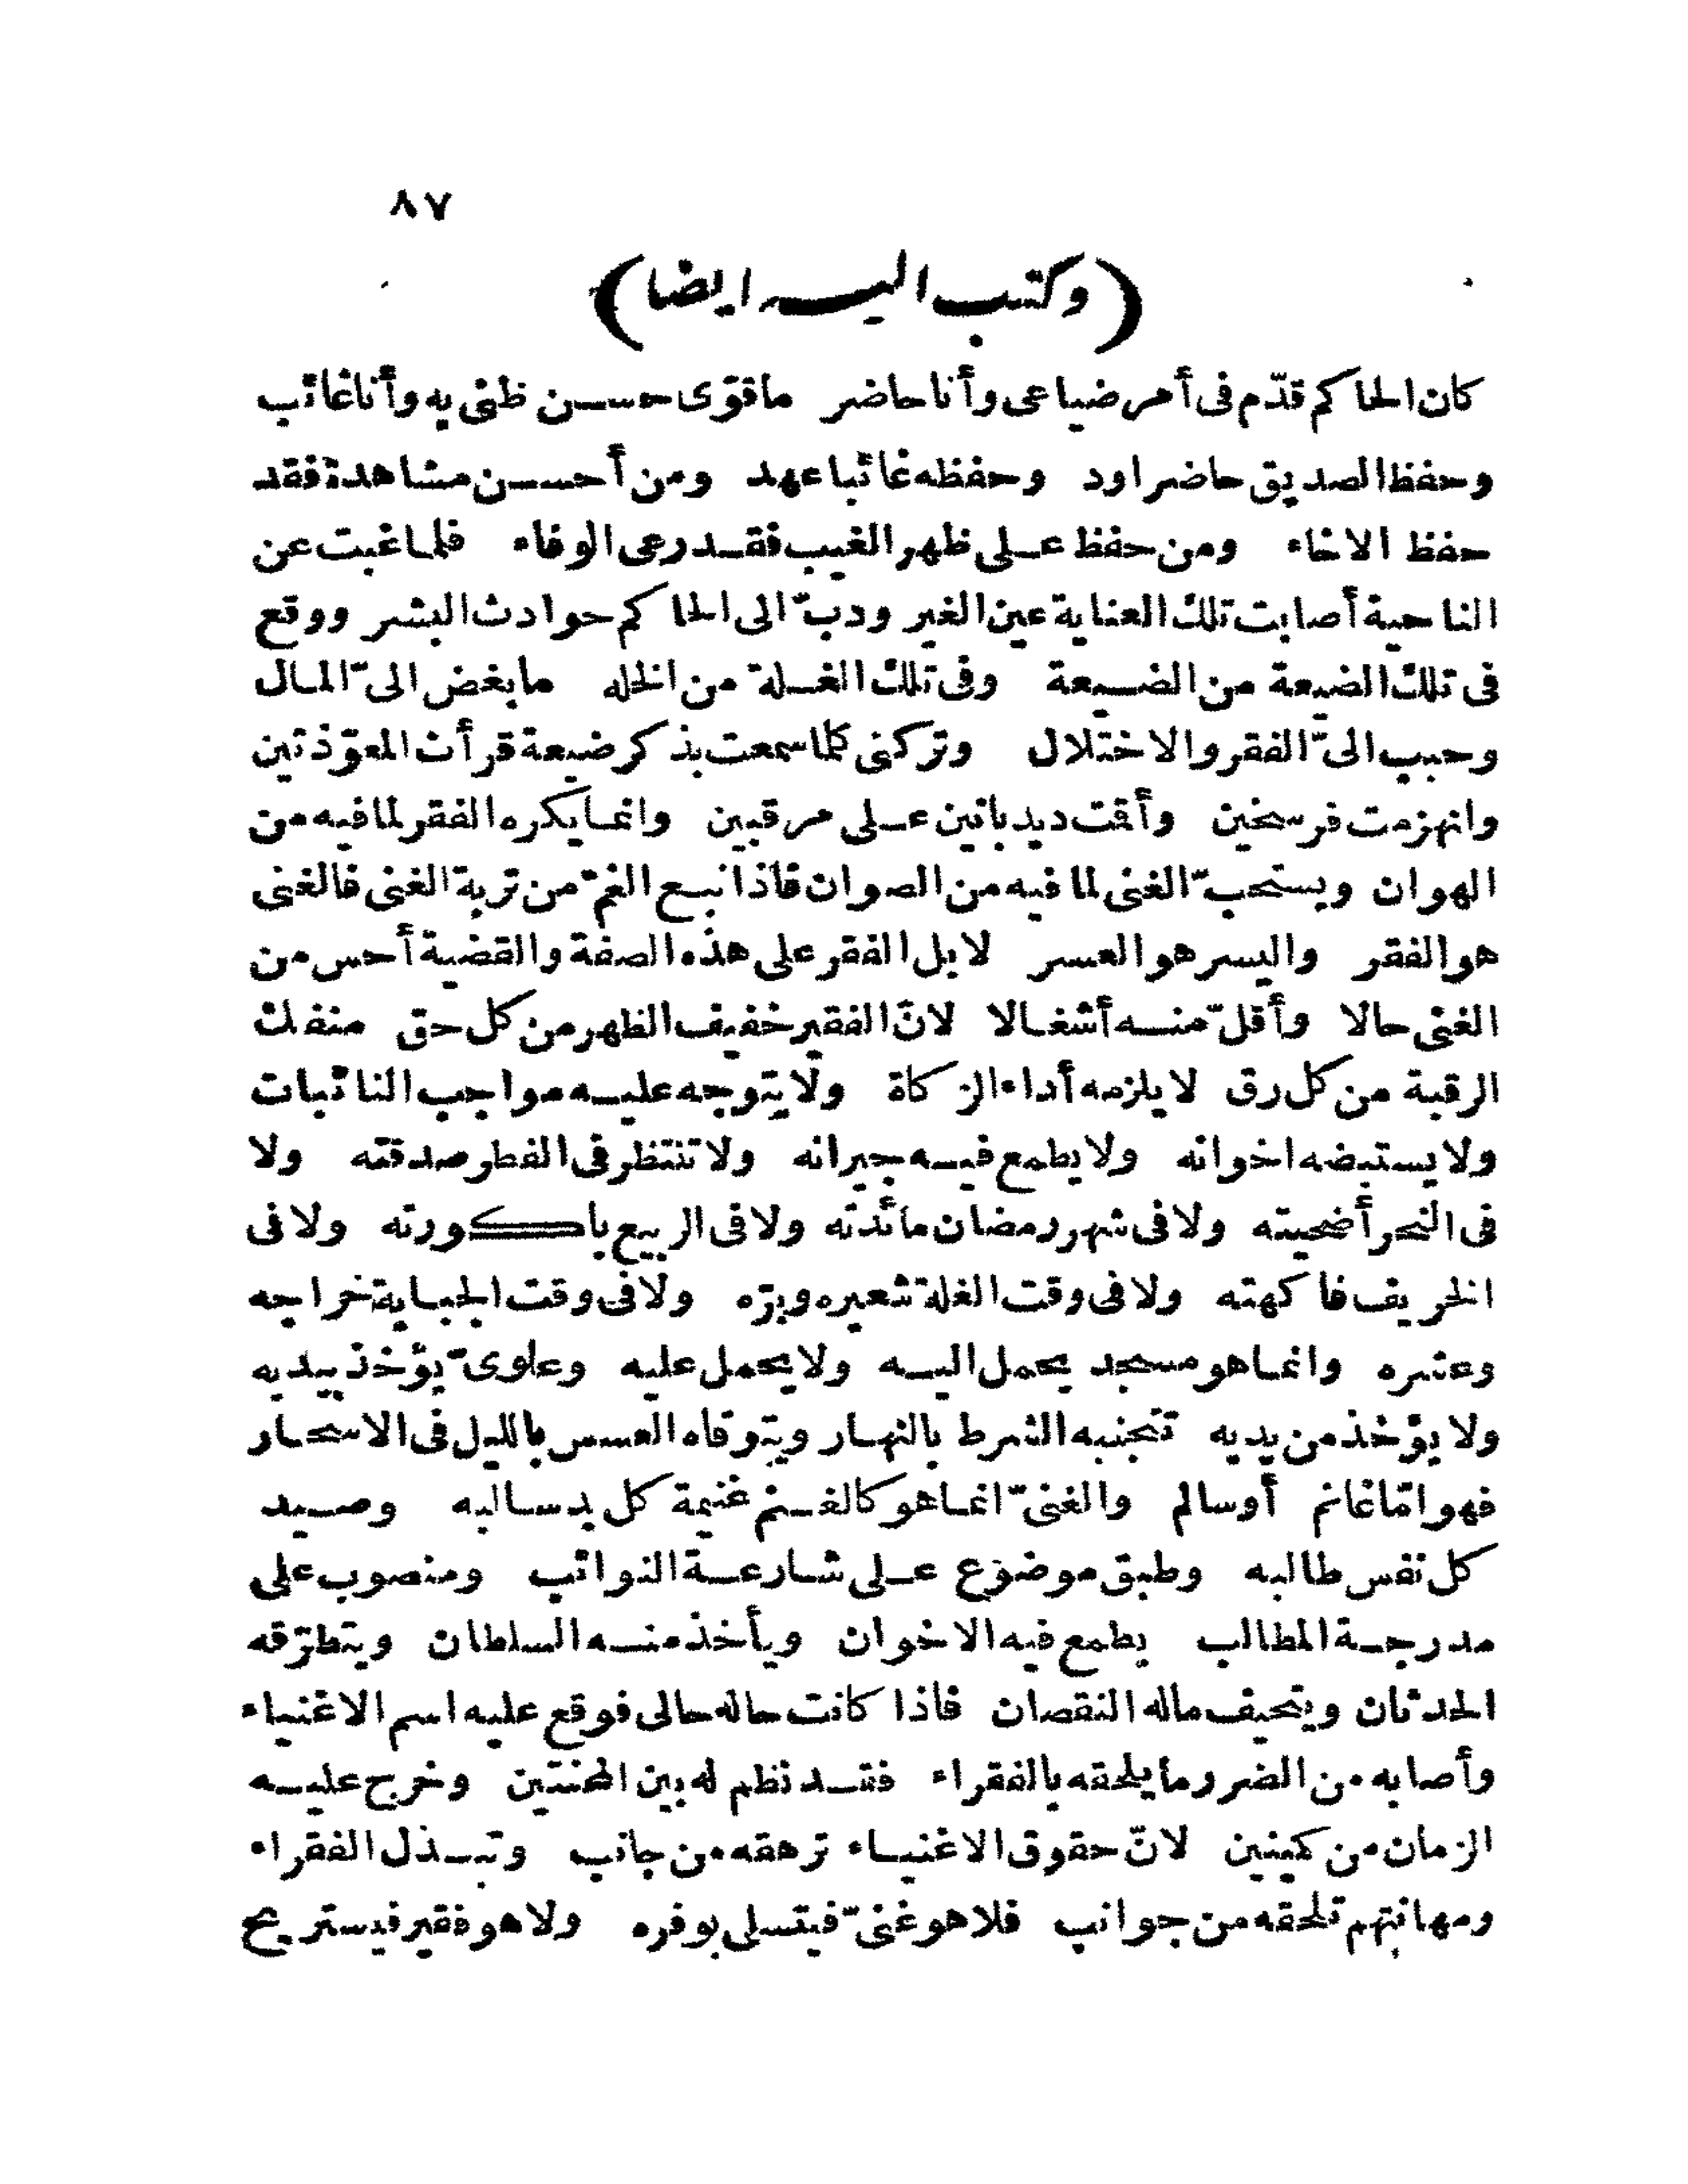 ٨٧
(وكتب اليه ايضا)
كان الحاكم قدّم فى أمر ضياعى وأنا حاضر ما قوّى حسن ظنى به وأنا غائب
وحفظ الصديق حاضرا ود وحفظه غائبا عهد ومن أحسن مشاهدة فقد
حفظ الاخاء ومن حفظ على ظهر الغيب فقد رعى الوفاء فلما غبت عن
الناحية أصابت تلك العناية عين الغير ودبّ الى الحاكم حوادث البشر ووقع
فى تلك الضيعة من الضيعة وفى تلك الغلة من الخله ما بغض الىّ المال
وحبب الىّ الفقر والاختلال وتركنى كلما سمعت بذكر ضيعة قرأت المعوّذتين
وانهزمت فرسخين وأقت ديدبانين على مرقبين وانما يكره الفقر لما فيه من
الهوان ويستحبّ الغنى لما فيه من الصوان فاذا نبع الغمّ من تربة الغنى فالغنى
هو الفقر واليسر هو العسر لا بل الفقر على هذه الصفة والقضية أحسن من
الغنى حالا وأقلّ منه أشغالا لانّ الفقير خفيف الظهر من كل حق منفك
الرقبة من كل رق لا يلزمه أداء الزكاة ولا يتوجه عليه مواجب النائبات
ولا يستبضه اخوانه ولا يطمع فيه جيرانه ولا تنتظر فى الفطر صدقته ولا
فى النحر أضحيته ولا فى شهر رمضان مائدته ولا فى الربيع باكورته ولا فى
الخريف فاكهته ولا فى وقت الغلة شعيره وبرّه ولا فى وقت الجباية خراجه
وعشره وانما هو مسجد يحمل اليه ولا يحمل عليه وعلوىّ يؤخذ بيديه
ولا يؤخذ من يديه تتجنبه الشرط بالنهار ويتوقاه العسس بالليل فى الاسحار
فهو امّا غانم أو سالم والغنىّ انما هو كالغنم غنيمة كل يد سالبه وصيد
كل نفس طالبه وطبق موضوع على شارعة النوائب ومنصوب على
مدرجة المطالب يطمع فيه الاخوان ويأخذ منه السلطان ويتطرّقه
الحدثان ويتحيف ماله النقصان فاذا كانت حاله حالى فوقع عليه اسم الاغنياء
وأصابه من الضرر ما يلحقه بالفقراء فقد نظم له بين المحنتين وخرج عليه
الزمان من كمينين لانّ حقوق الاغنياء ترهقه من جانب وتبذل الفقراء
ومهانتهم تلحقه من جوانب فلا هو غنىّ فيتسلى بوفره ولا هو فقير فيستريح